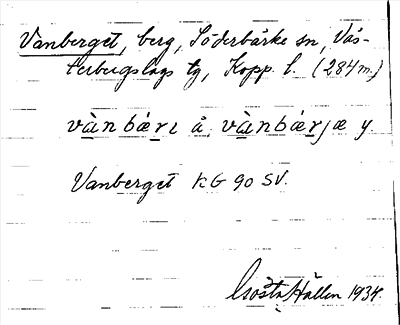 Vanberget, berg, Söderbärke sn, Väs-
terbergslags tg, Kopp. l. (284 m.)
vànbǽrɩ å, vànbǽrjæ y.
Vanberget KG 90 SV.
Gösta Hallen 1934.